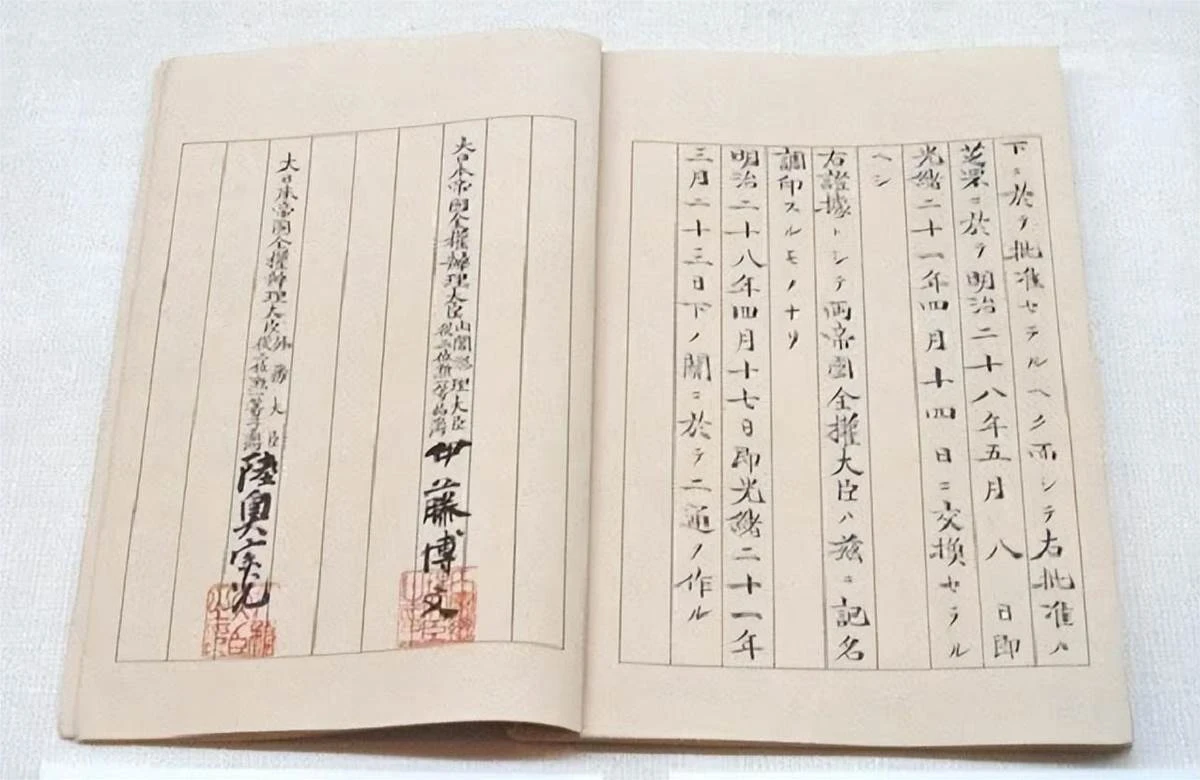 下ニ於テ批准セラルヘク而シテ右批准ハ
芝罘ニ於テ明治二十八年五月八日即
光緒二十一年四月十四日ニ交換セラル
ヘシ
右證據トシテ兩帝國全權大臣ハ茲ニ記名
調印スルモノナリ
明治二十八年四月十七日即光緒二十一年
三月二十三日下ノ關ニ於テ二通ヲ作ル
大日本帝國全權辦理大臣内閣總理大臣從二位勲一等伯爵伊藤博文
大日本帝國全權辦理大臣外務大臣從二位勲一等子爵陸奥宗光